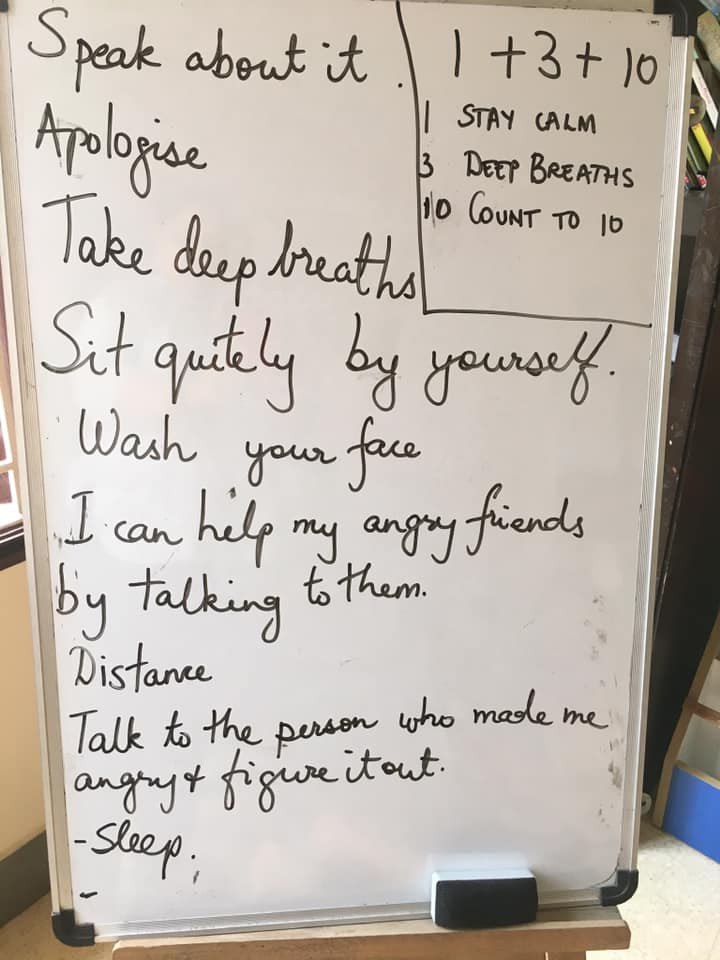 Speak about it.
Apologise
Take deep breaths
Sit quitely by yourself.
Wash your face
I can help my angry friends
by talking to them.
Distance
Talk to the person who made me
angry & figure it out.
- Sleep.
-
1 + 3 + 10
1 STAY CALM
3 DEEP BREATHS
10 COUNT TO 10